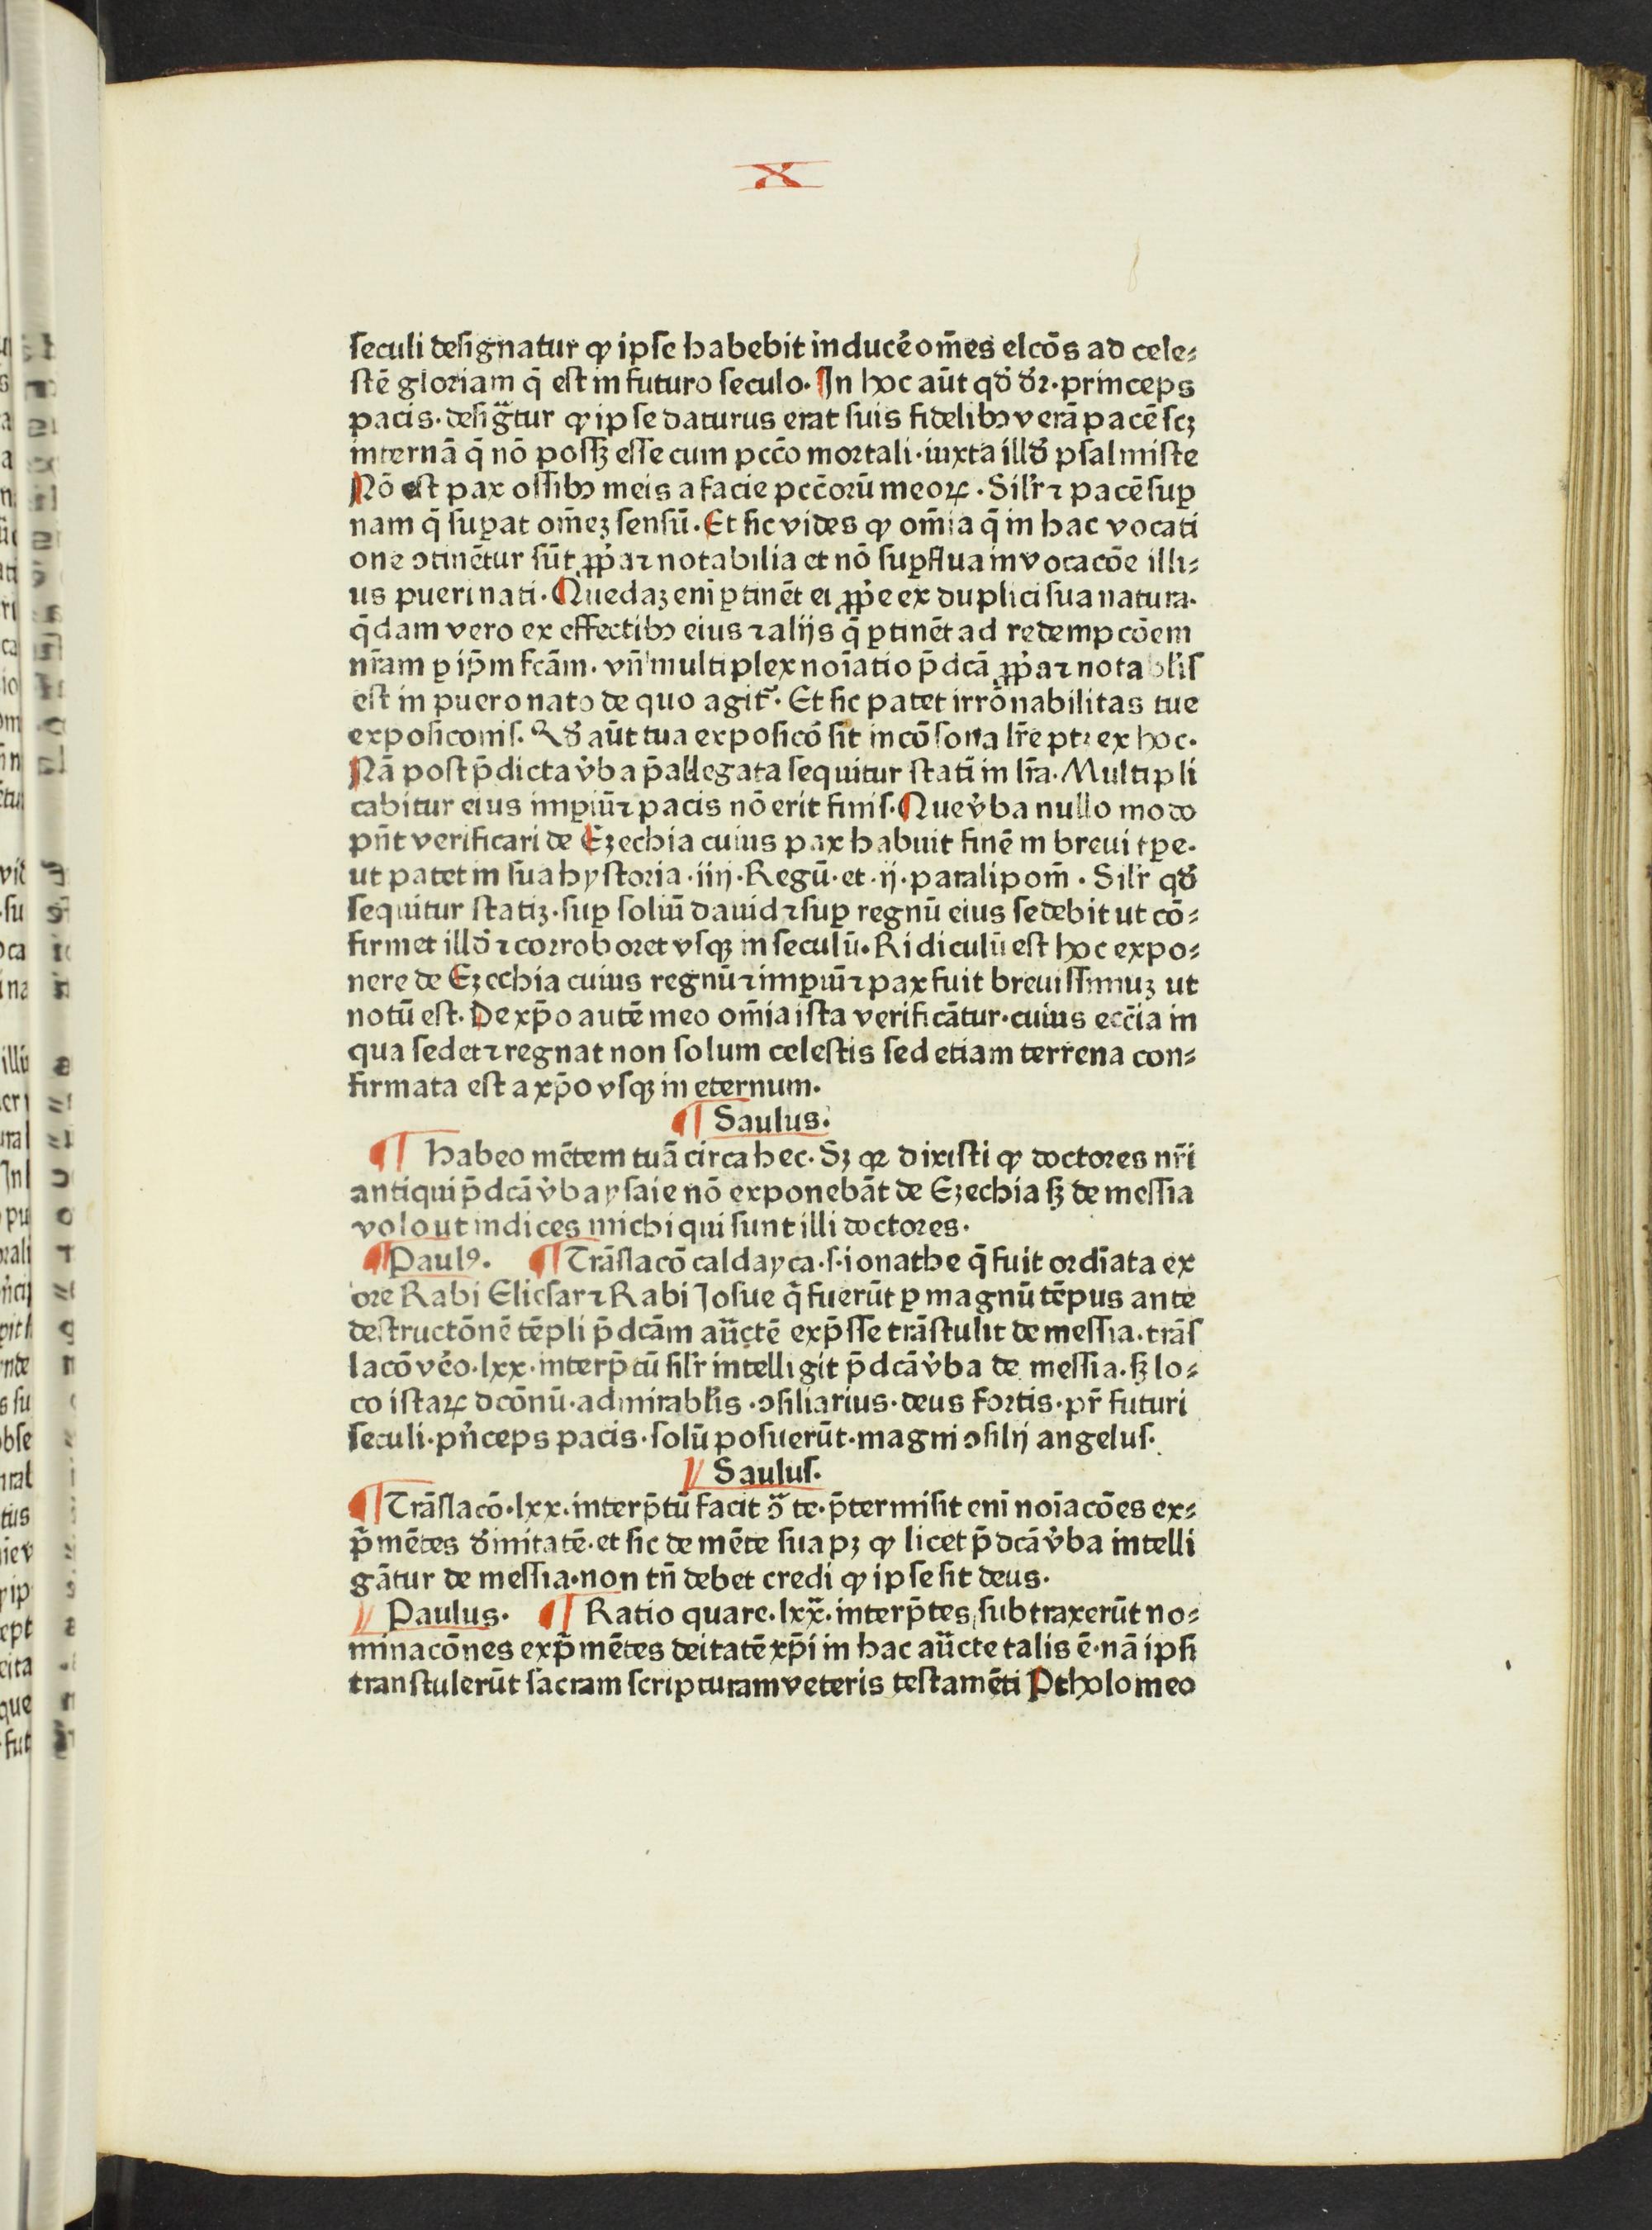 X
seculi designatur ꝙ ipse habebit inducẽ om̃es elcõs ad cele⸗
stẽ gloriam q̃ est in futuro seculo. In hoc aũt qđ đꝛ. princeps
pacis. desigꝼtur ꝙ ipse daturus erat suis fidelibꝰ verã pacẽ scꝫ
internã q̃ nõ possꝫ esse cum pccõ mortali. iuxta illđ psalmiste
Nõ est pax ossibꝰ meis a facie pcc̃orũ meoꝝ. Silꝛ̃ ⁊ pacẽ suꝑ
nam q̃ suꝑat om̃eꝫ sensũ. Et sic vides ꝙ om̃ia q̃ in hac vocati
one ↄtinẽtur sũt ꝓp̃a ⁊ notabilia et nõ suꝑflua in vocacõe illi⸗
us pueri nati. Quedaꝫ eni ꝑtinẽt ei ꝓp̃e ex duplici sua natura.
q̃dam vero ex effectibꝰ eius ⁊ alijs q̃ ꝑtinẽt ad redempcõem
nr̃am ꝑ ip̃m fcãm. vñ multiplex noĩatio p̃dcã ꝓp̃a ⁊ notablis
est in puero nato de quo agit᷑. Et sic patet irrõnabilitas tue
exposiconis. Qđ aũt tua exposicõ sit incõsona lr̃e ptꝫ ex hoc.
Nã post p̃dicta v̓ba p̃allegata sequitur stati in lr̃a. Multipli
cabitur eius imꝑiũ ⁊ pacis nõ erit finis. Que v̓ba nullo modo
pñt verificari de Ezechia cuius pax habuit finẽ in breui tꝑe.
ut patet in sua hystoria. iiij. Regũ. et. ij. paralipom̃. Silꝛ̃ qđ
sequitur statiꝫ. suꝑ soliũ dauid ⁊ suꝑ regnũ eius sedebit ut cõ⸗
firmet illđ ⁊ corroboret vsqꝫ in seculũ. Ridiculũ est hoc expo⸗
nere de Ezechia cuius regnũ ⁊ imꝑiũ ⁊ pax fuit breuissimuꝫ ut
notũ est. De xp̃o autẽ meo om̃ia ista verificãtur. cuius ecc̃ia in
qua sedet ⁊ regnat non solum celestis sed etiam terrena con⸗
firmata est a xp̃o vsqꝫ in eternum.
¶ Saulus.
¶ habeo mẽtem tuã circa hec. Sꝫ qꝛ dixisti ꝙ doctores nr̃i
antiqui p̃dcã v̓ba ysaie nõ exponebãt de Ezechia sꝫ de messia
volo ut indices michi qui sunt illi doctores.
¶ Paulꝰ. ¶ Trãslacõ caldayca. s. ionathe q̃ fuit ordĩata ex
ore Rabi Eliesar ⁊ Rabi Josue q̃ fuerũt ꝑ magnũ tẽpus ante
destructõnẽ tẽpli p̃dcãm auc̃tẽ exp̃sse trãstulit de messia. trãs
lacõ veõ. lxx. interp̃tũ silꝛ̃ intelligit p̃dcã v̓ba de messia. sꝫ lo⸗
co istaꝝ dcõnũ. admirablis. ↄsiliarius. deus fortis. pr̃ futuri
seculi. pñceps pacis. solũ posuerũt. magni ↄsilij angelus.
// Saulus.
¶ Trãslacõ. lxx. interp̃tũ facit ↄ̃ te. p̃termisit eni noĩacões ex⸗
p̃mẽtes đinitatẽ. et sic de mẽte sua pꝫ ꝙ licet p̃dcã v̓ba intelli
gãtur de messia. non tñ debet credi ꝙ ipse sit deus.
// Paulus. ¶ Ratio quare. lxx. interp̃tes subtraxerũt no⸗
minacõnes exp̃mẽtes deitatẽ xp̃i in hac auc̃te talis ẽ. nã ipsi
transtulerũt sacram scripturam veteris testamẽti Ptholomeo